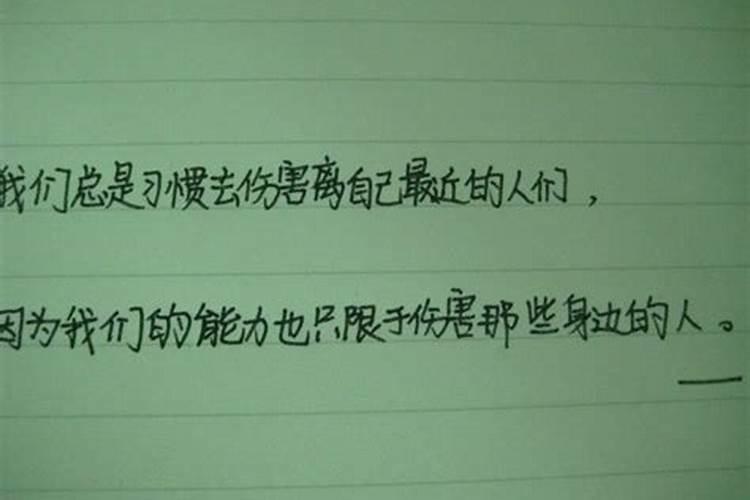 我们总是习惯去伤害离自己最近的人们，
因为我们的能力也只限于伤害那些身边的人。